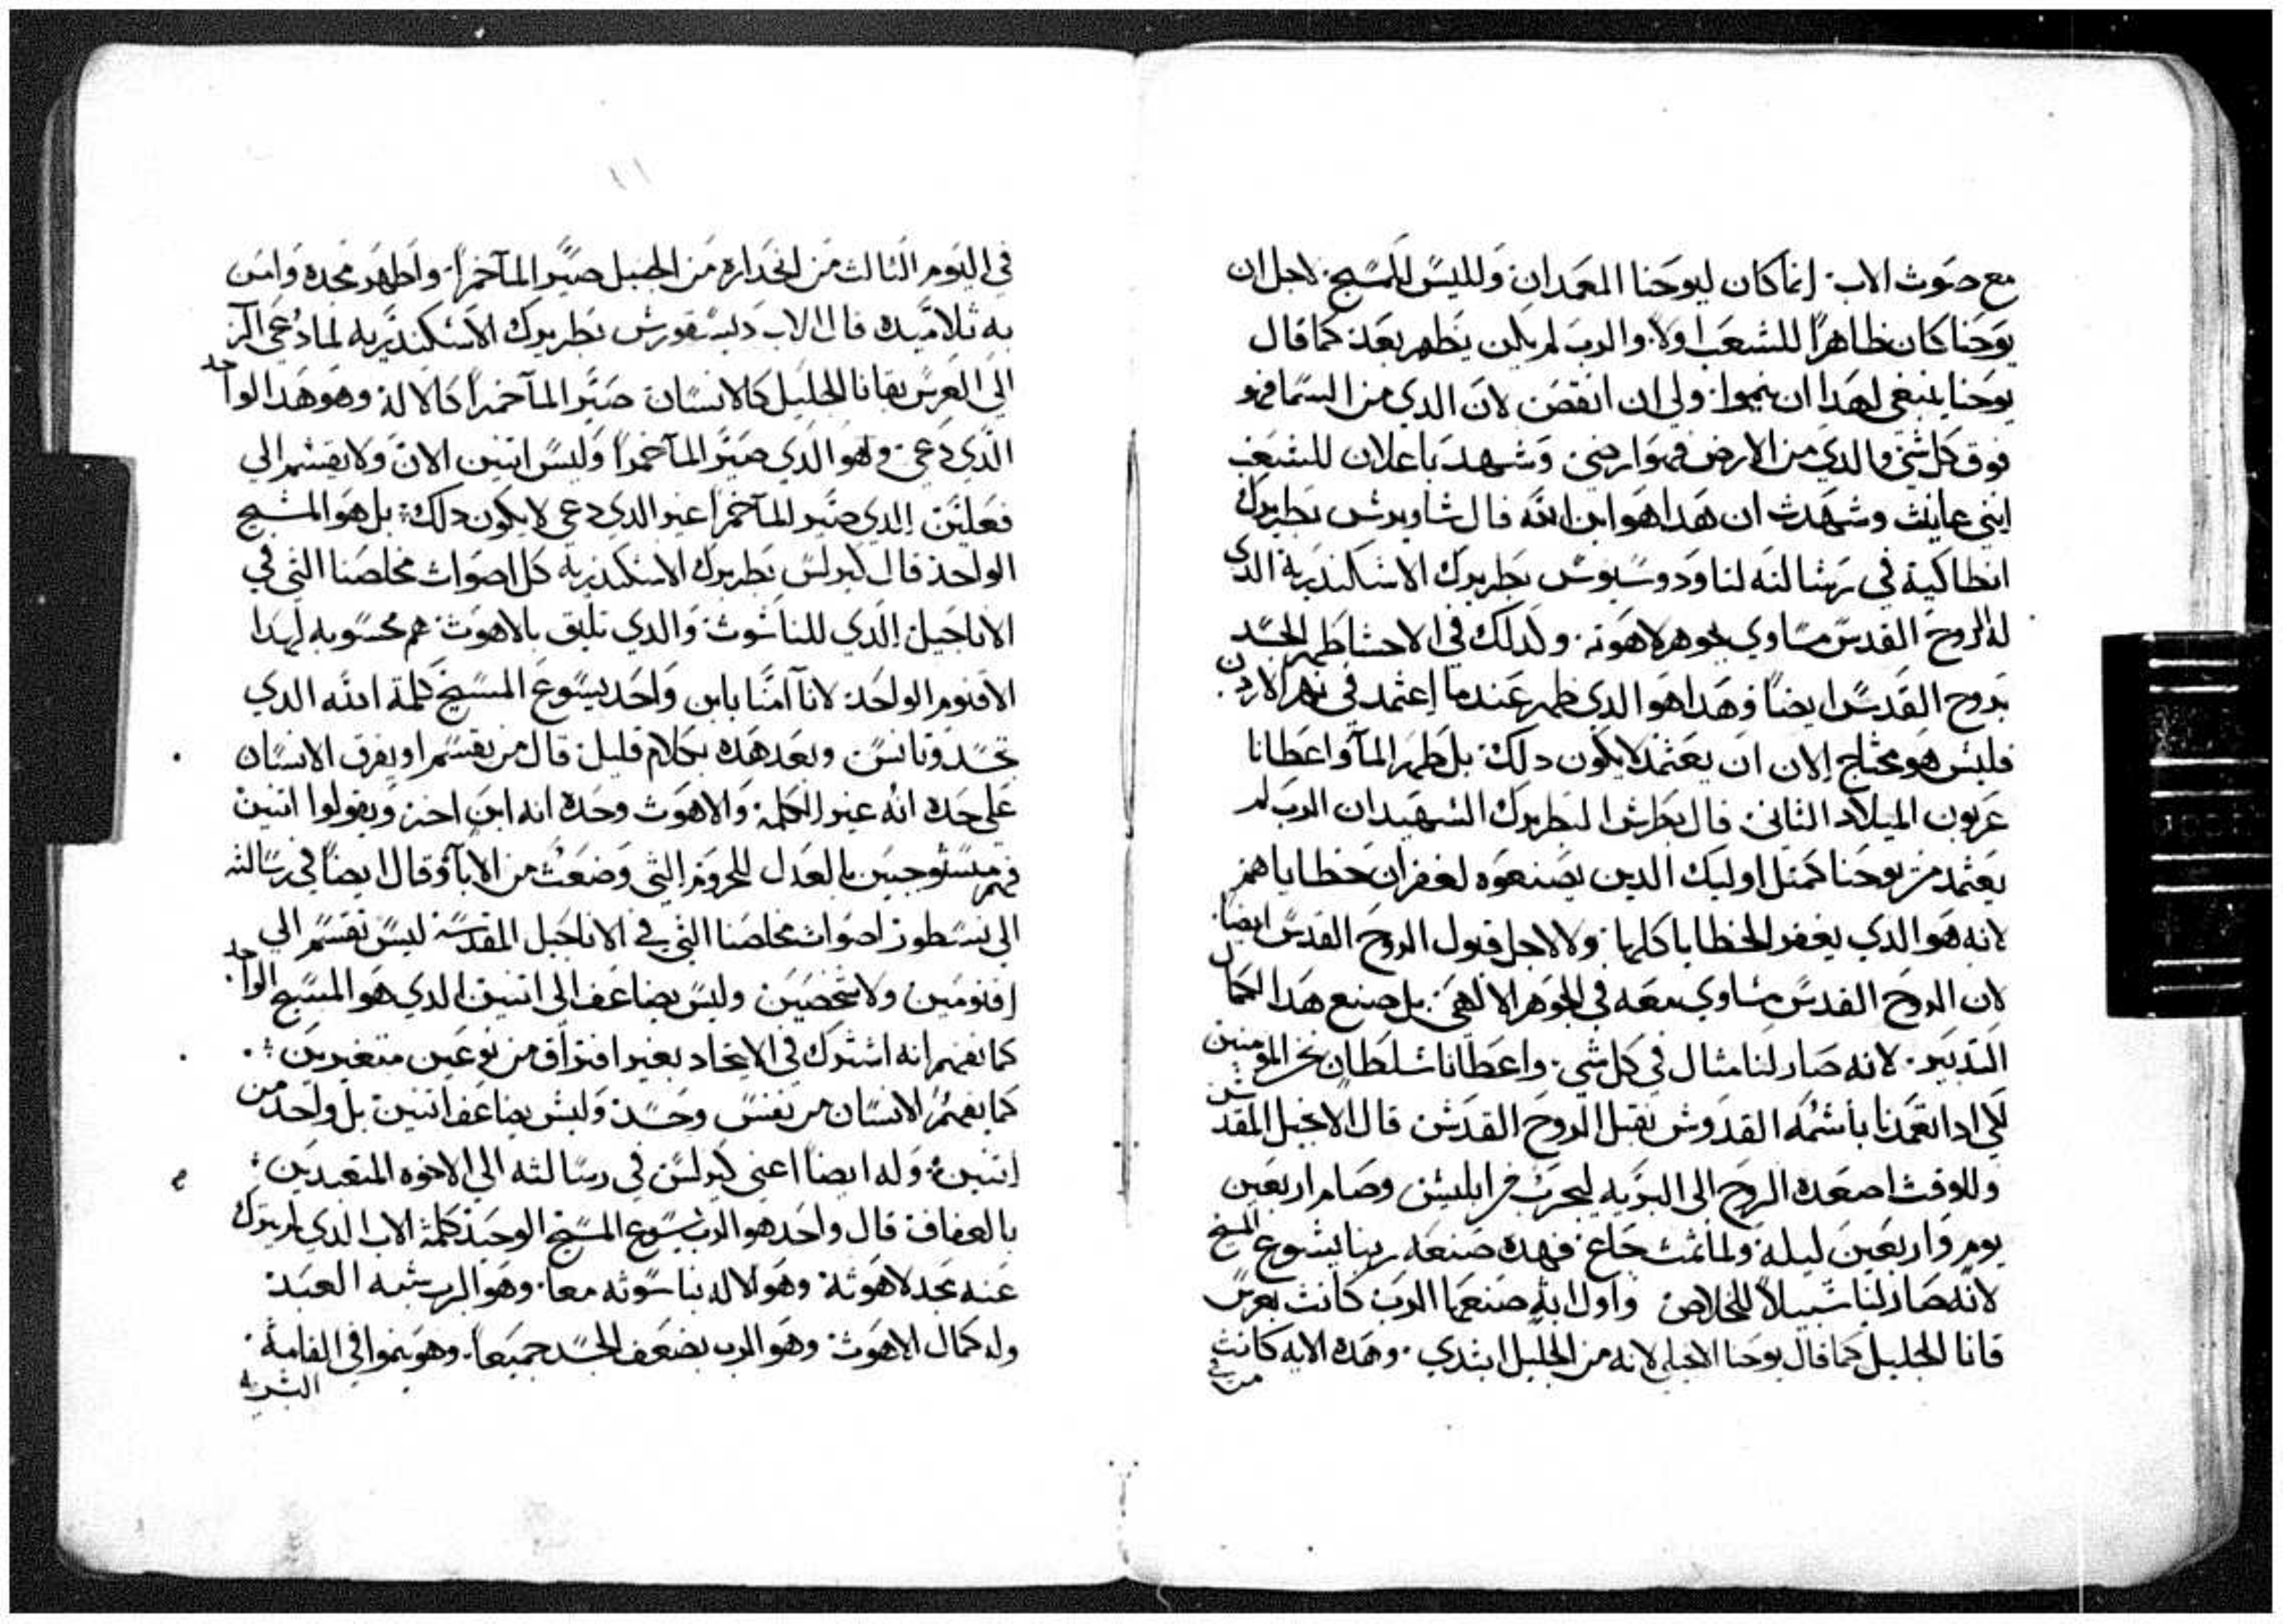 مع صوت الاب. انما كان ليوحنا المعمدان وليس المسيح. لاجل ان
يوحنا كان ظاهرا للشعب اولا. والرب لم يكن يظهر بعد كما قال
يوحنا ينبغي لهدا ان ينموا. ولي ان انقص لان الدي من السما فهو
فوق كل شي والدي من الارض فهو ارضي وشهد باعلان للشعب
انني عاينت وشهدت ان هدا هو ابن الله قال شاويرش بطريرك
انطاكية في رشالته لتاودوسيوس بطريرك الاشكندرية الدي
له الروح القدس مساوي بجوهر لاهوته. ولدلك في الاحشا طهر الجسد
بروح القدس ايضا وهدا هو الدي ظهر عندما اعتمد في نهر الاردن.
فليس هو محتاج الان ان يعتمد لا يكون دلك بل طهر المآ واعطانا
عربون الميلاد الثاني. قال بطرش البطريرك الشهيد ان الرب لم
يعتمد من يوحنا كمثل اوليك الدين يصنعوه لغفران خطاياهم
لانه هو الدي يغفر الخطايا كلها. ولا لاجل قبول الروح القدس ايضا.
لان الروح القدس مساوي معه في الجوهر الالهي. بل صنع هدا لكمال
التدبير. لانه صار لنا مثال في كل شي. واعطانا شلطان نحن المومنين
لكي ادا تعمدنا بأشمه القدوش نقبل الروح القدش قال الانجيل المقدش
وللوقت اصعده الروح الى البرية ليجرب من ابليش وصام اربعين
يوم واربعين ليلة ولما تمت جاع فهده صنعه ربنا يشوع المسيح
لانه صار لنا شبيلا للخلاص واول اية صنعها الرب كانت بعرس
قانا الجليل كما قال يوحنا الانجيلي لانه من الجليل ابتدي. وهده الايه كانت
في اليوم الثالث من انحداره من الجبل صير المآ خمرا. واظهر مجده وامن
به تلاميده قال الاب ديسقورش بطريرك الاسكندريه لما دعي الرب
الى العرس بقانا الجليل كالانسان صير المآ خمرا كالاله وهو هدا الواحد
الدي دعي وهو الدي صير المآ خمرا وليس اتنين الان ولا يقسم الي
فعلين الدي صير المآ خمرا غير الدي دعي لا يكون دلك بل هو المشيح
الواحد قال كيرلس بطريرك الاسكندرية كل اصوات مخلصنا التي في
الاناجيل الدي للناشوت والدي تليق بالاهوت هم محسوبه لهدا
الاقنوم الواحد لانا آمنا بابن واحد يسوع المسيح كلمة الله الدي
تجسد وتانس وبعد هده بكلام قليل قال من يقسم او يفرق الانسان
على حده انه غير الكلمة والاهوت وحده انه ابن اخر ويقولوا اتنين
فهم مستوجبين بالعدل للحروم التي وضعت من الابآ وقال ايضا في رسالته
الي نسطور اصوات مخلصنا التي في الاناجيل المقدسة ليس تقسم الي
اقنومين ولا شخصين وليس يضاعف الى اتنين الدي هو المسيح الواحد.
كما نفهم انه اشترك في الاتحاد بغير افتراق من نوعين متغيرين
كما نفهم الانسان من نفس وجسد وليش يضاعف اتنين بل واحد من
اتنين وله ايضا اعني كيرلس في رسالته الي الاخوه المتعبدين
بالعفاف قال واحد هو الرب يسوع المسيح الوحيد كلمة الاب الدي لم يترك
عنه مجد لاهوته وهو الاله بناسوته معا. وهو الرب شبه العبد
وله كمال الاهوت وهو الرب بضعف الجسد جميعا. وهو ينموا في القامة.